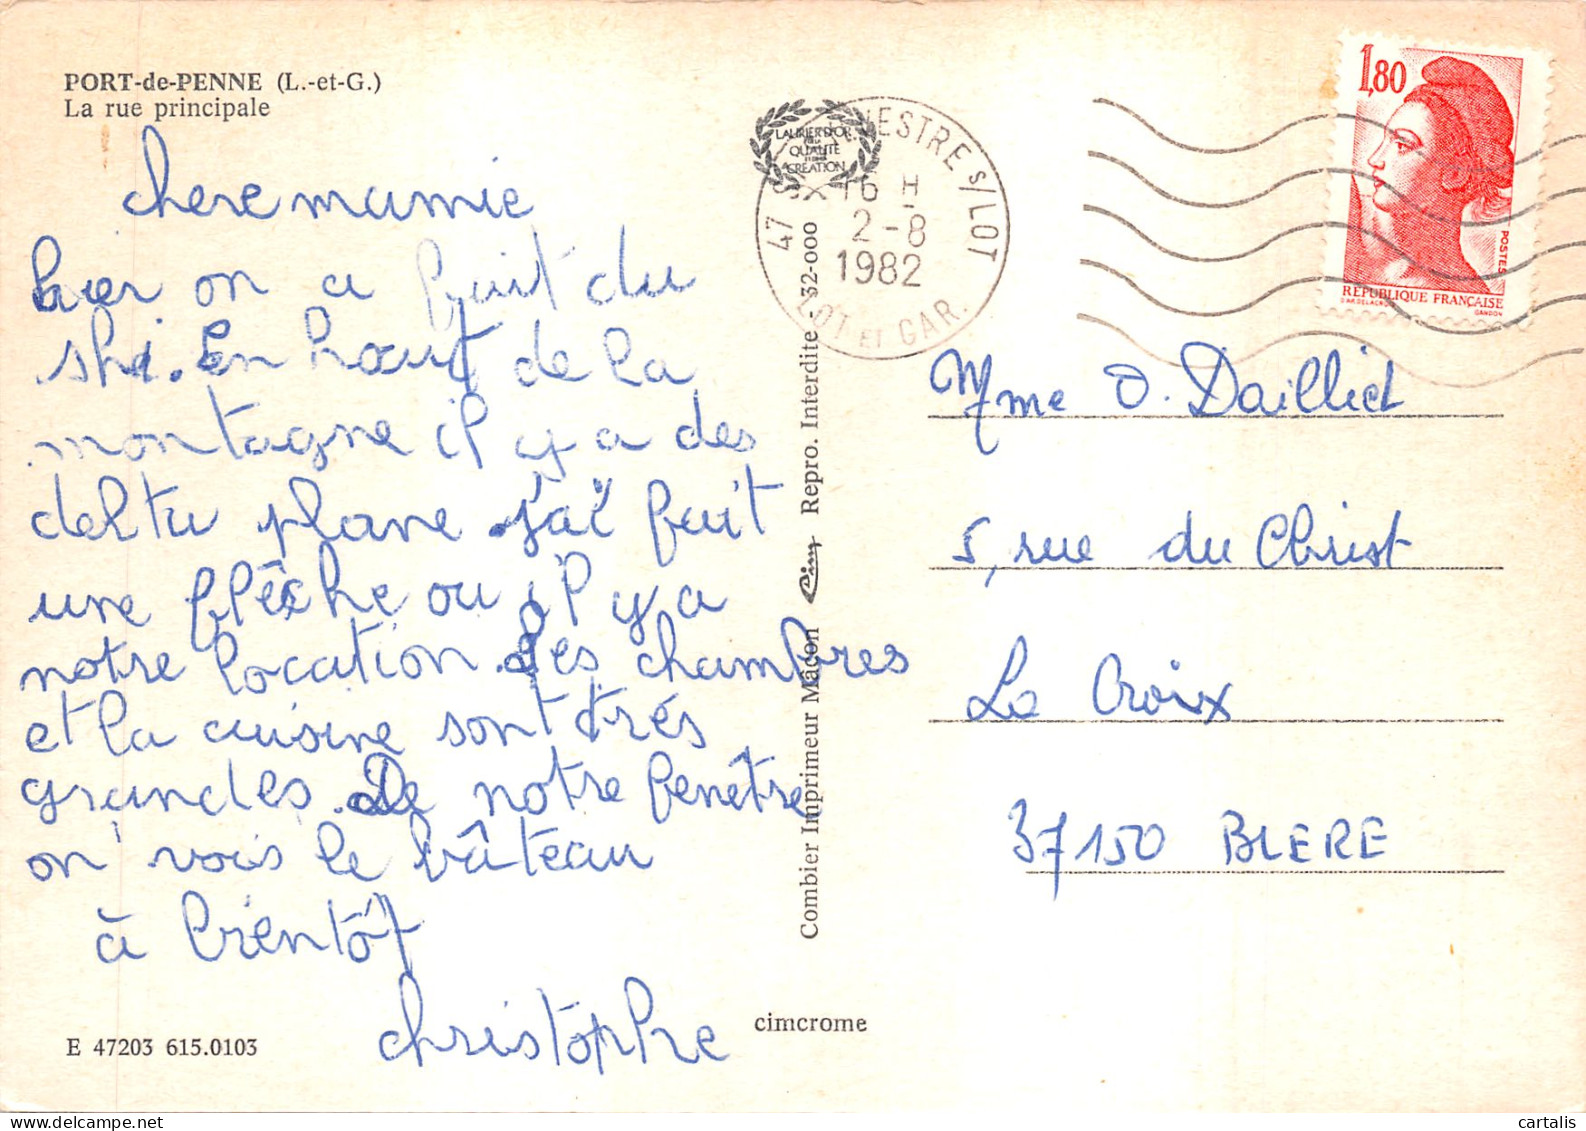 PORT-de-PENNE (L.-et-G.)
La rue principale
chere mamie
hier on a fait du
shi. En haut de la
montagne il y a des
delta plane. J'ai fait
une flêche ou il y a
notre location. Les chambres
et la cuisine sont très
grandes. De notre fenêtre
on vois le bâteau
à bientôt
christophe
E 47203 615.0103
cimcrome
Combier Imprimeur Mâcon Cim Repro. Interdite - 32-000
LAURIER D'OR
DE LA
QUALITÉ
CRÉATION
47 NESTRE S/LOT
16 H
2-8
1982
LOT ET GAR.
1,80
POSTES
RÉPUBLIQUE FRANÇAISE
GANDON
Mme O. Dailliet
5, rue du Christ
La Croix
37150 BLERE
cartalis